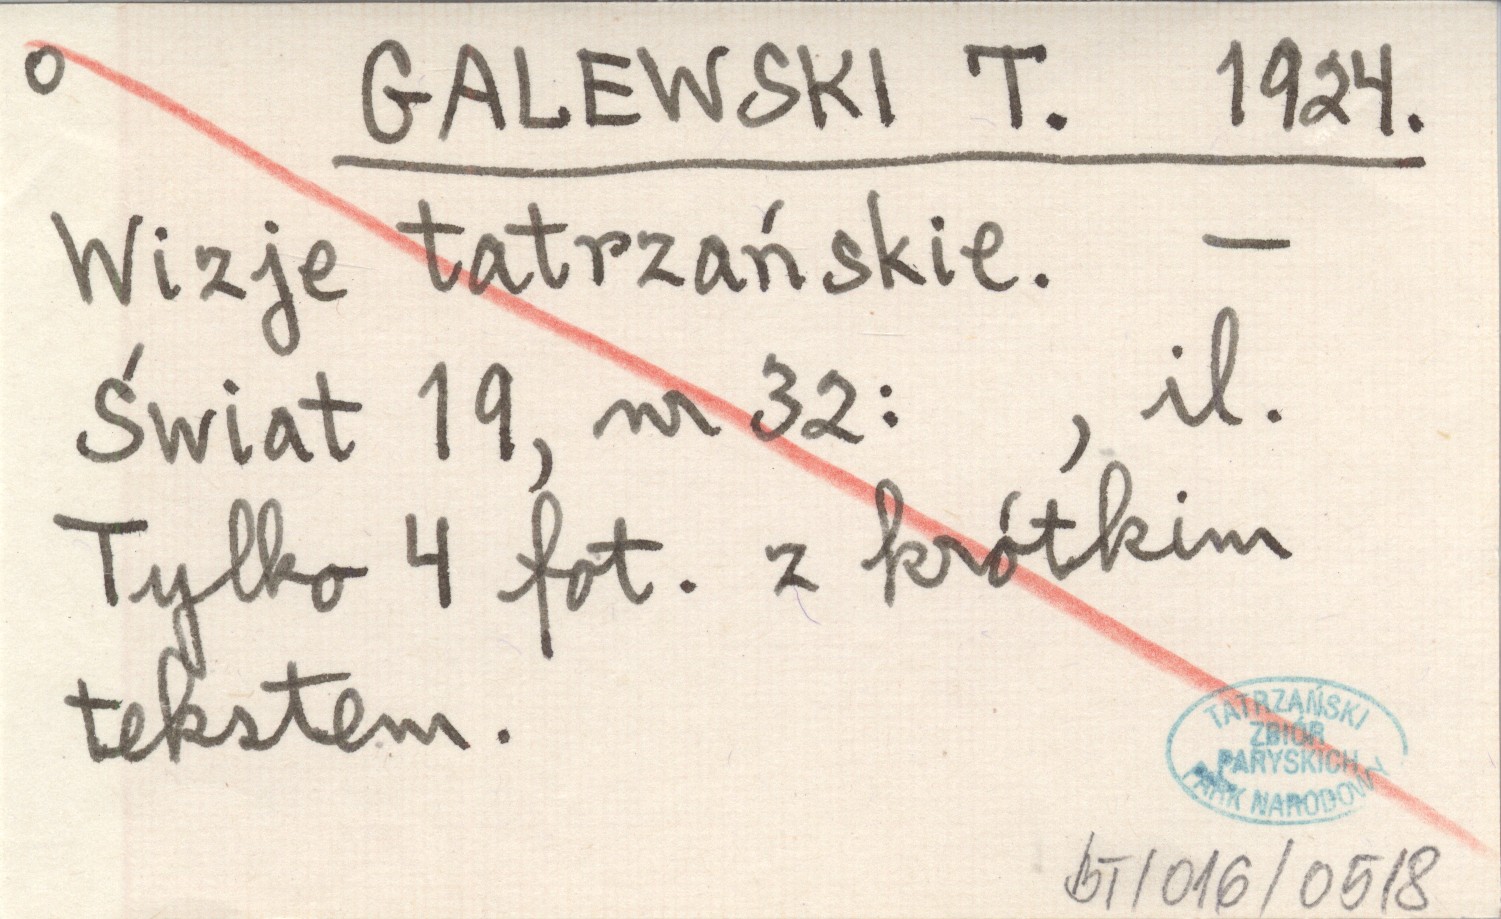 o GALEWSKI T. 1924.
Wizje tatrzańskie. —
Świat 19, nr 32: , il.
Tylko 4 fot. z krótkim
tekstem.
TATRZAŃSKI
ZBIÓR
PARYSKICH
PARK NARODOWY
BT/016/0518